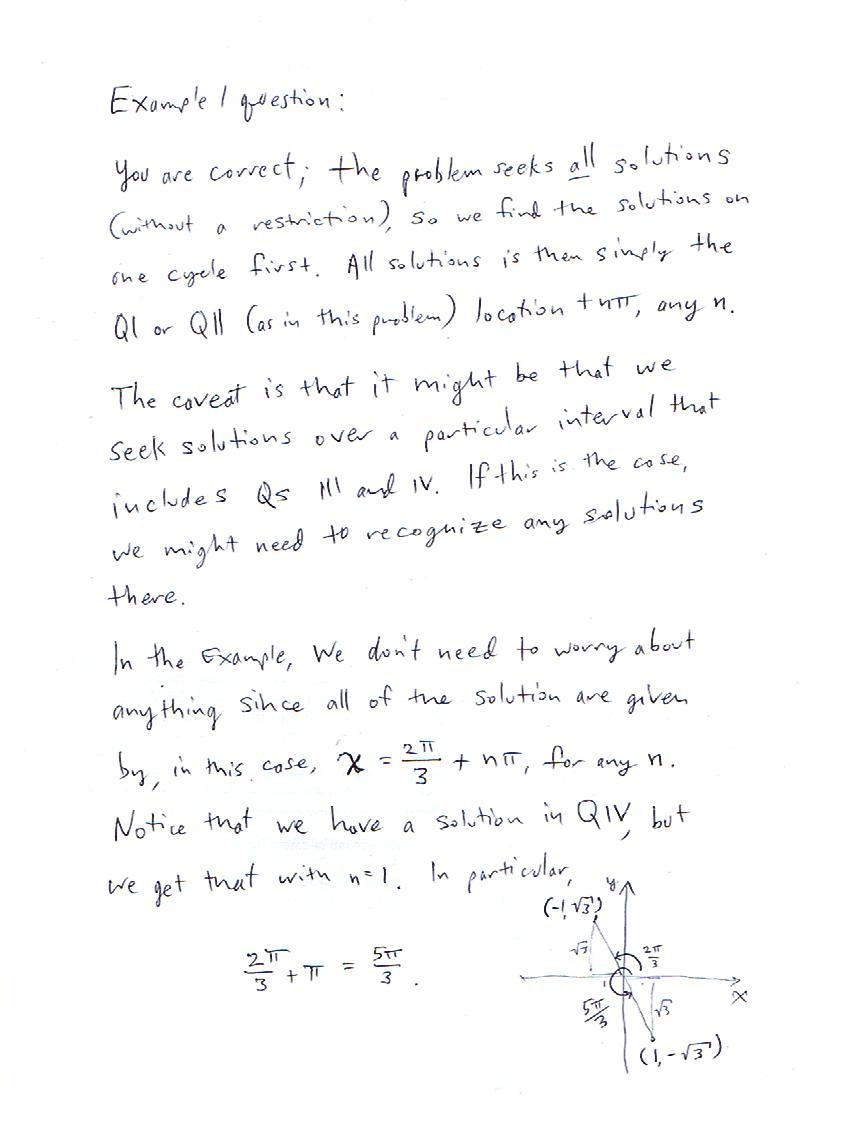 Example 1 question:
You are correct; the problem seeks all solutions
(without a restriction), so we find the solutions on
one cycle first. All solutions is then simply the
QI or QII (as in this problem) location + nπ, any n.
The caveat is that it might be that we
seek solutions over a particular interval that
includes Qs III and IV. If this is the case,
we might need to recognize any solutions
there.
In the Example, We don't need to worry about
anything since all of the solution are given
by, in this case, x = 2π/3 + nπ, for any n.
Notice that we have a solution in QIV, but
we get that with n=1. In particular,
2π/3 + π = 5π/3.
y
(-1, √3)
√3
2π/3
1
x
5π/3
√3
(1, -√3)